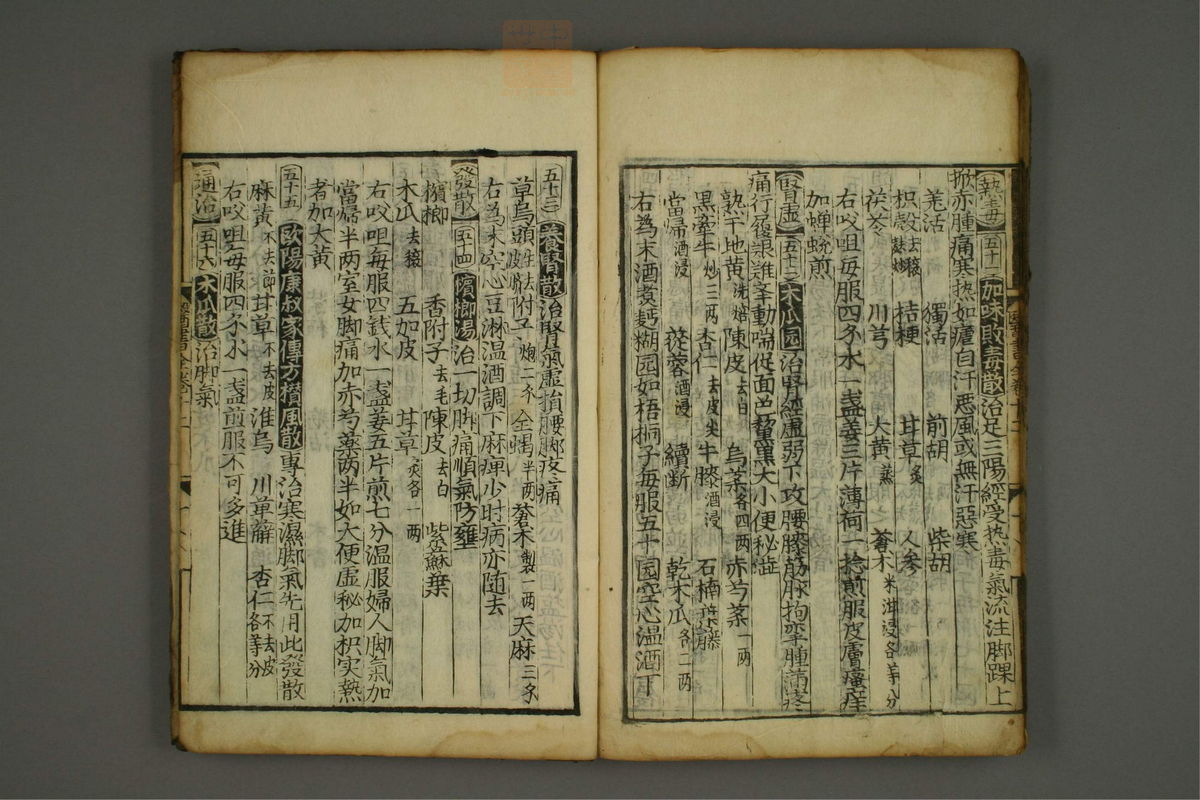 熱毒 五十一 加味敗毒散 治足三陽經受热毒氣流注脚踝上
掀亦腫痛寒热如瘧自汗悪風或無汗惡寒
羌活 獨活 前胡 柴胡
枳殻去穰麸炒 桔梗 甘草炙 人参
茯苓 川芎 大黄蒸 蒼朮米泔浸各等分
右㕮咀每服四分水一盞姜三片薄荷一捻煎服皮膚瘙痒
加蝉蛻煎
腎虚 五十二 木瓜园 治腎經虚弱下攻腰膝筋脉拘挛腫满疼
痛行履艱難挙動喘促面色黧黑大小便秘澁
熟干地黄洗焙 陳皮去白 烏薬各四两 赤芍薬一两
黒牽牛炒三两 杏仁去皮尖 牛膝酒浸 石楠葉
當帰酒浸 蓯蓉酒浸 續断 乾木瓜各二两
右為末酒煮麪糊园如梧桐子每服五十园空心温酒下
五十三 養腎散 治腎氣虚損腰脚疼痛
草烏頭生去皮臍 附子炮二分 全蝎半两 蒼朮製一两 天麻三分
右為末空心豆淋温酒調下麻痺少时病亦随去
發散 五十四 檳榔湯 治一切脚痛順氣防壅
檳榔 香附子去毛 陳皮去白 紫蘇葉
木瓜去穰 五加皮 甘草炙各一两
右㕮咀每服四銭水一盞姜五片煎七分温服婦人脚氣加
當帰半两室女脚痛加赤芍藥两半如大便虚秘加枳实熱
者加大黄
五十五 歐陽康叔家傳方攅風散 專治寒濕脚氣先用此發散
麻黄不去節 甘草不去皮 淮烏 川萆薢 杏仁不去皮各等分
右㕮咀每服四分水一盞煎服不可多進
通治 五十六 木瓜散 治脚氣